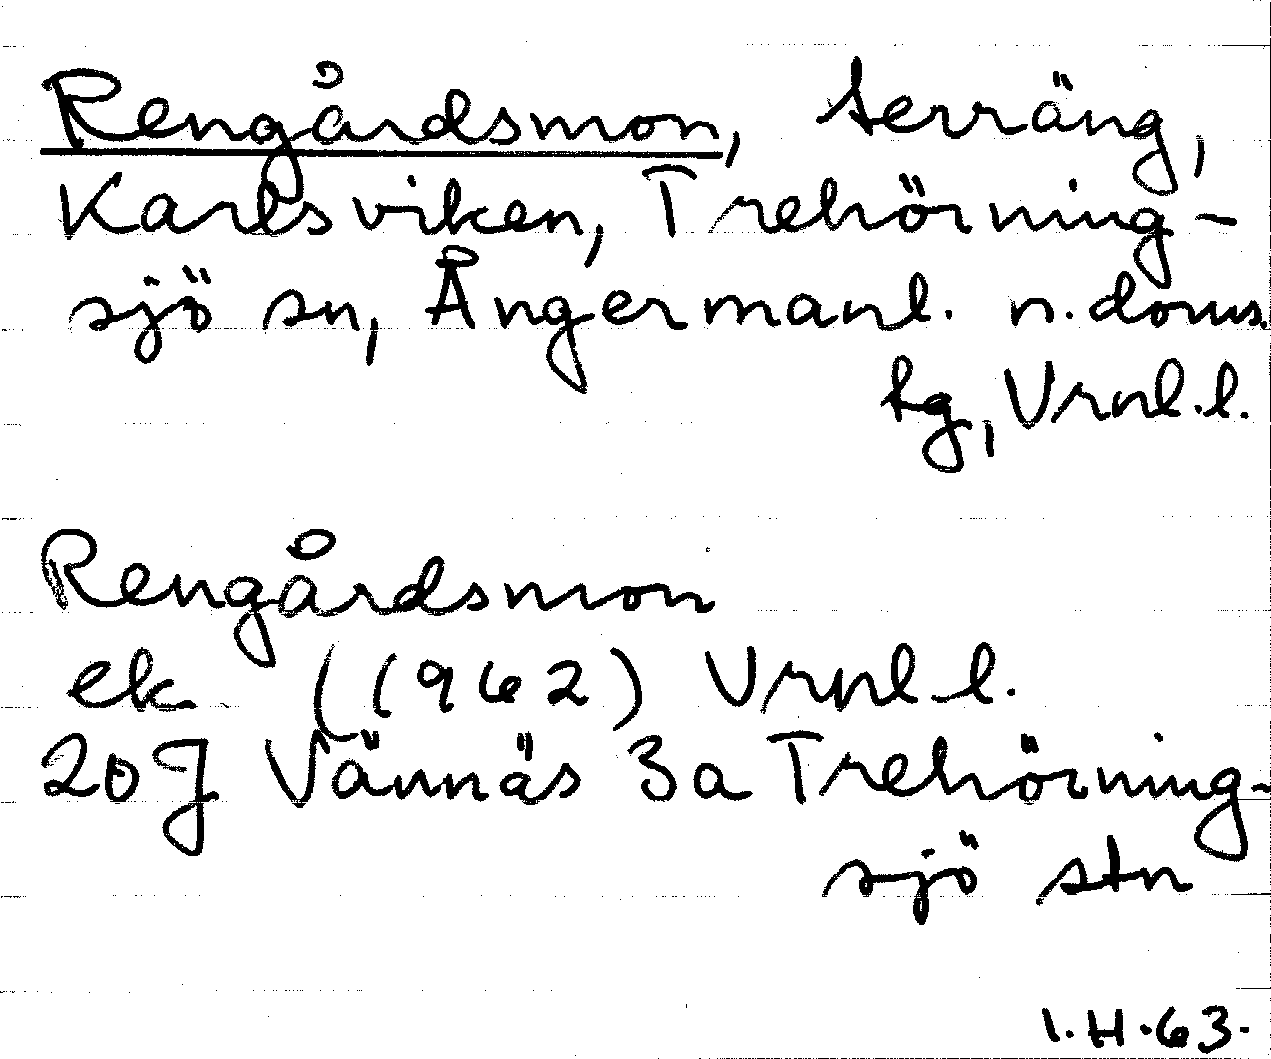 Rengårdsmon, terräng,
Karlsviken, Trehörning-
sjö sn, Ångermanl. n. doms.
tg, Vrnl.l.
Rengårdsmon
ek (1962) Vrnl.l.
20J Vännäs 3a Trehörning-
sjö stn
I.H.63.